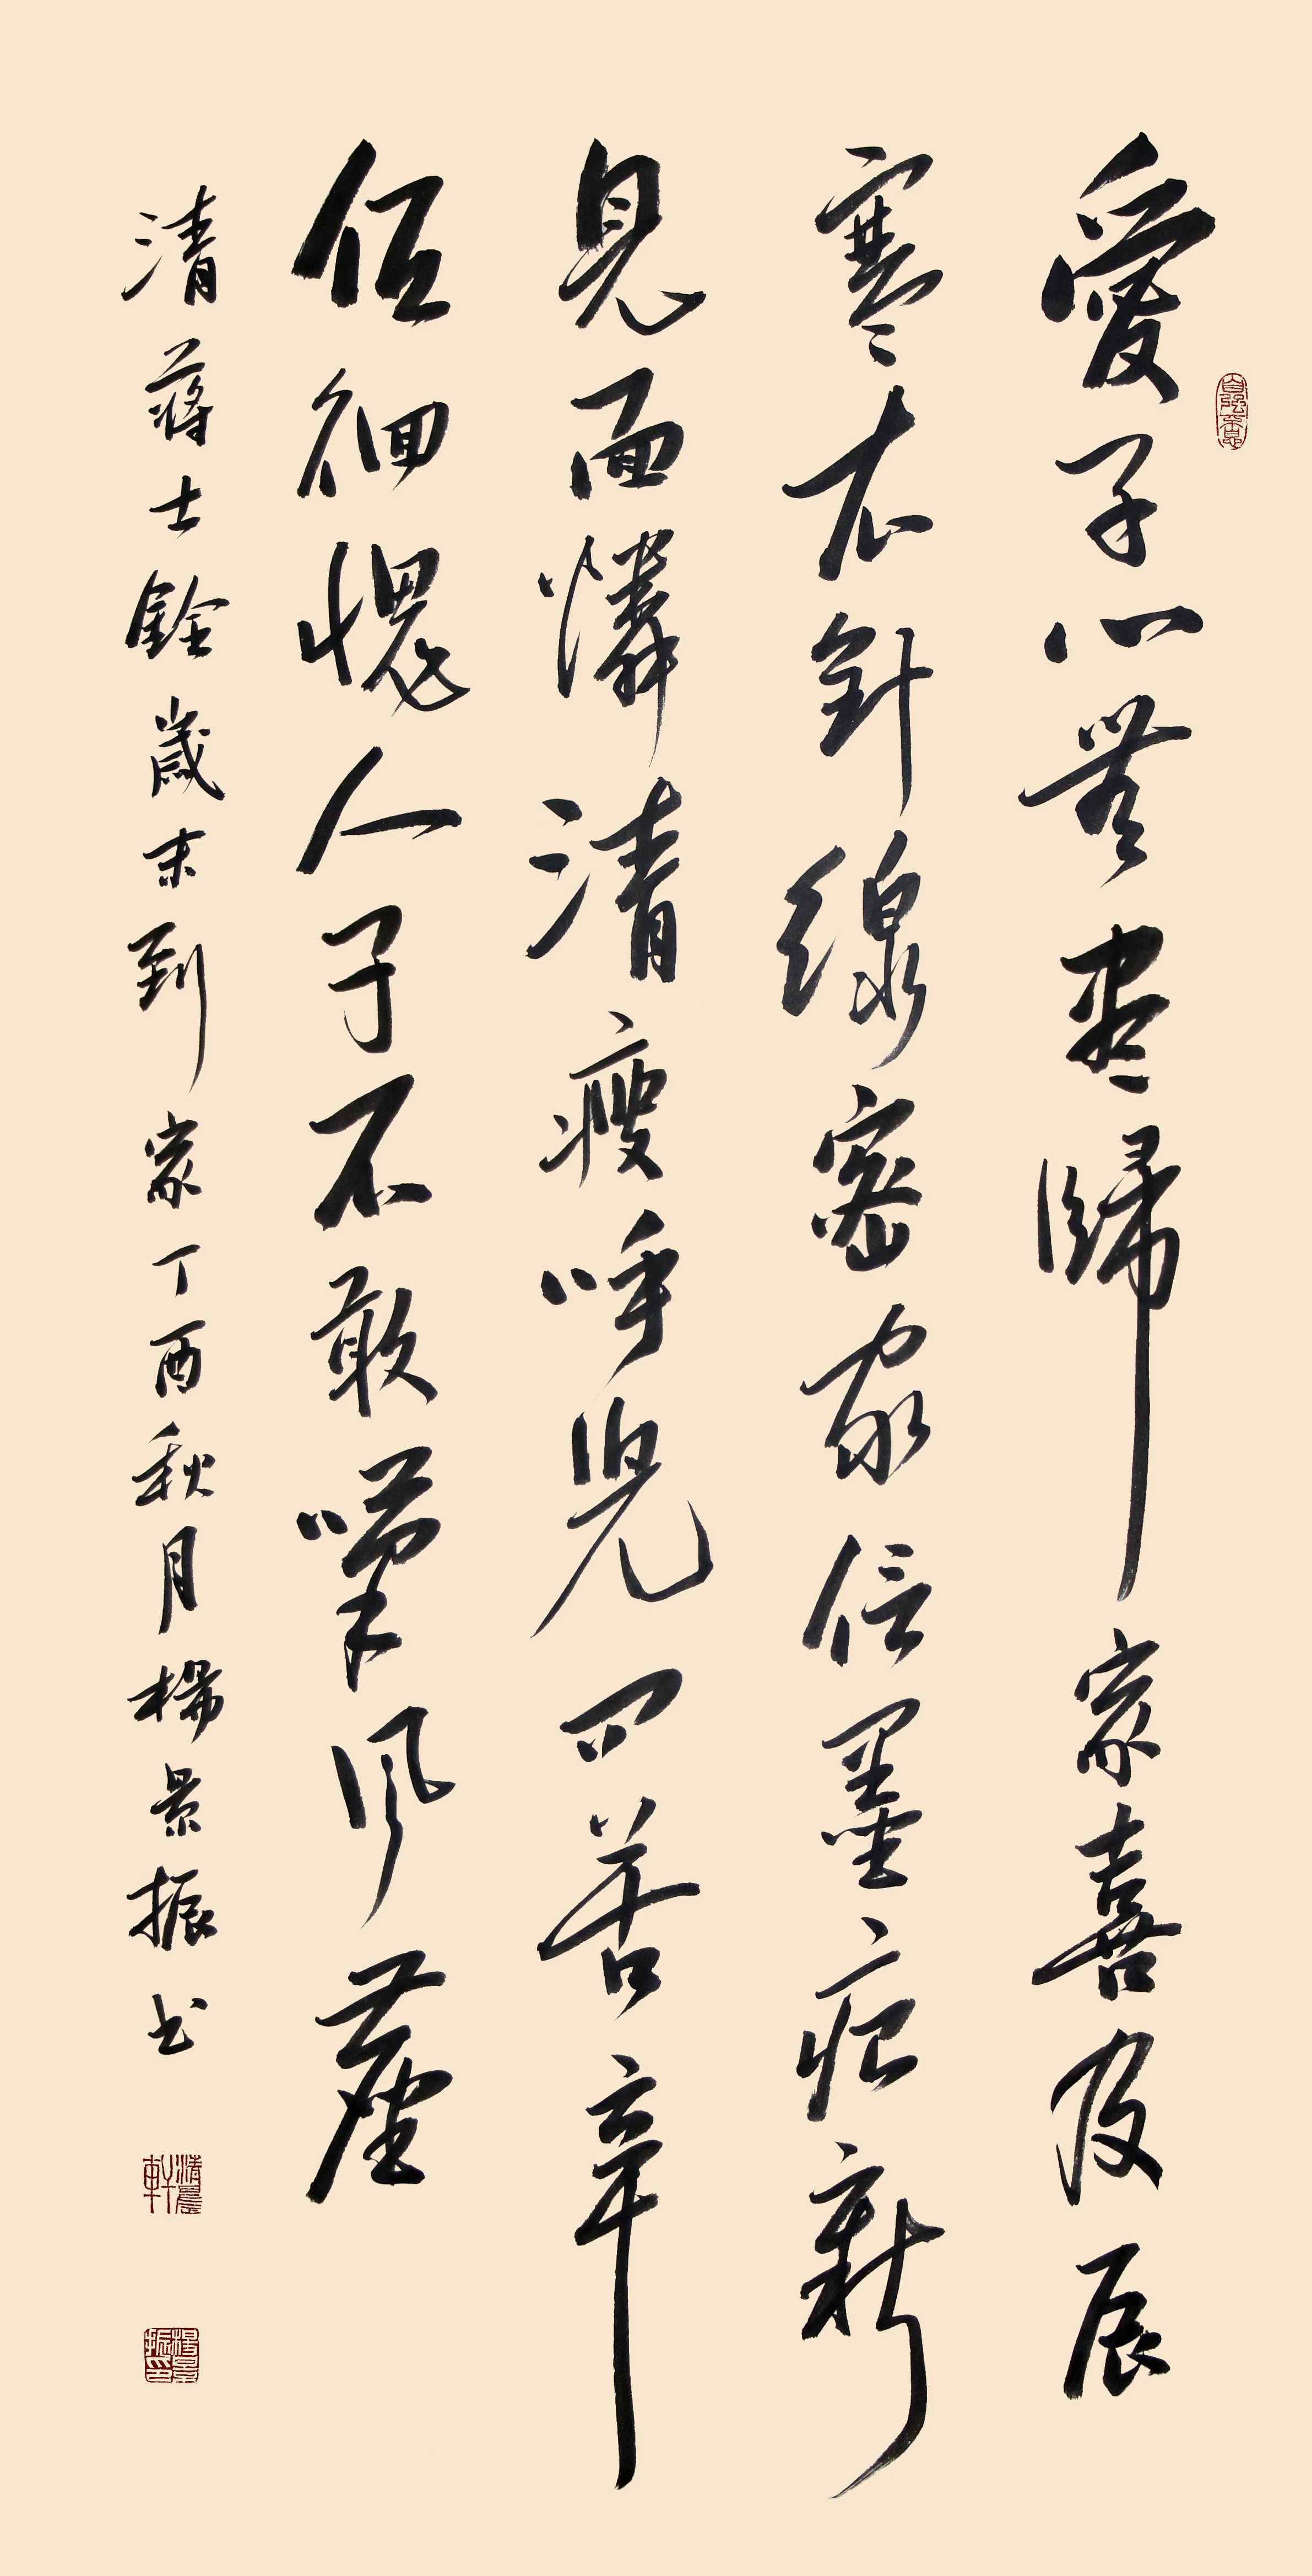 自強不息
愛子心無盡歸家喜及辰
寒衣針線密家信墨痕新
見面憐清瘦呼兒問苦辛
低徊愧人子不敢嘆風塵
清蔣士銓歲末到家丁酉秋月楊景振书
楊景振印